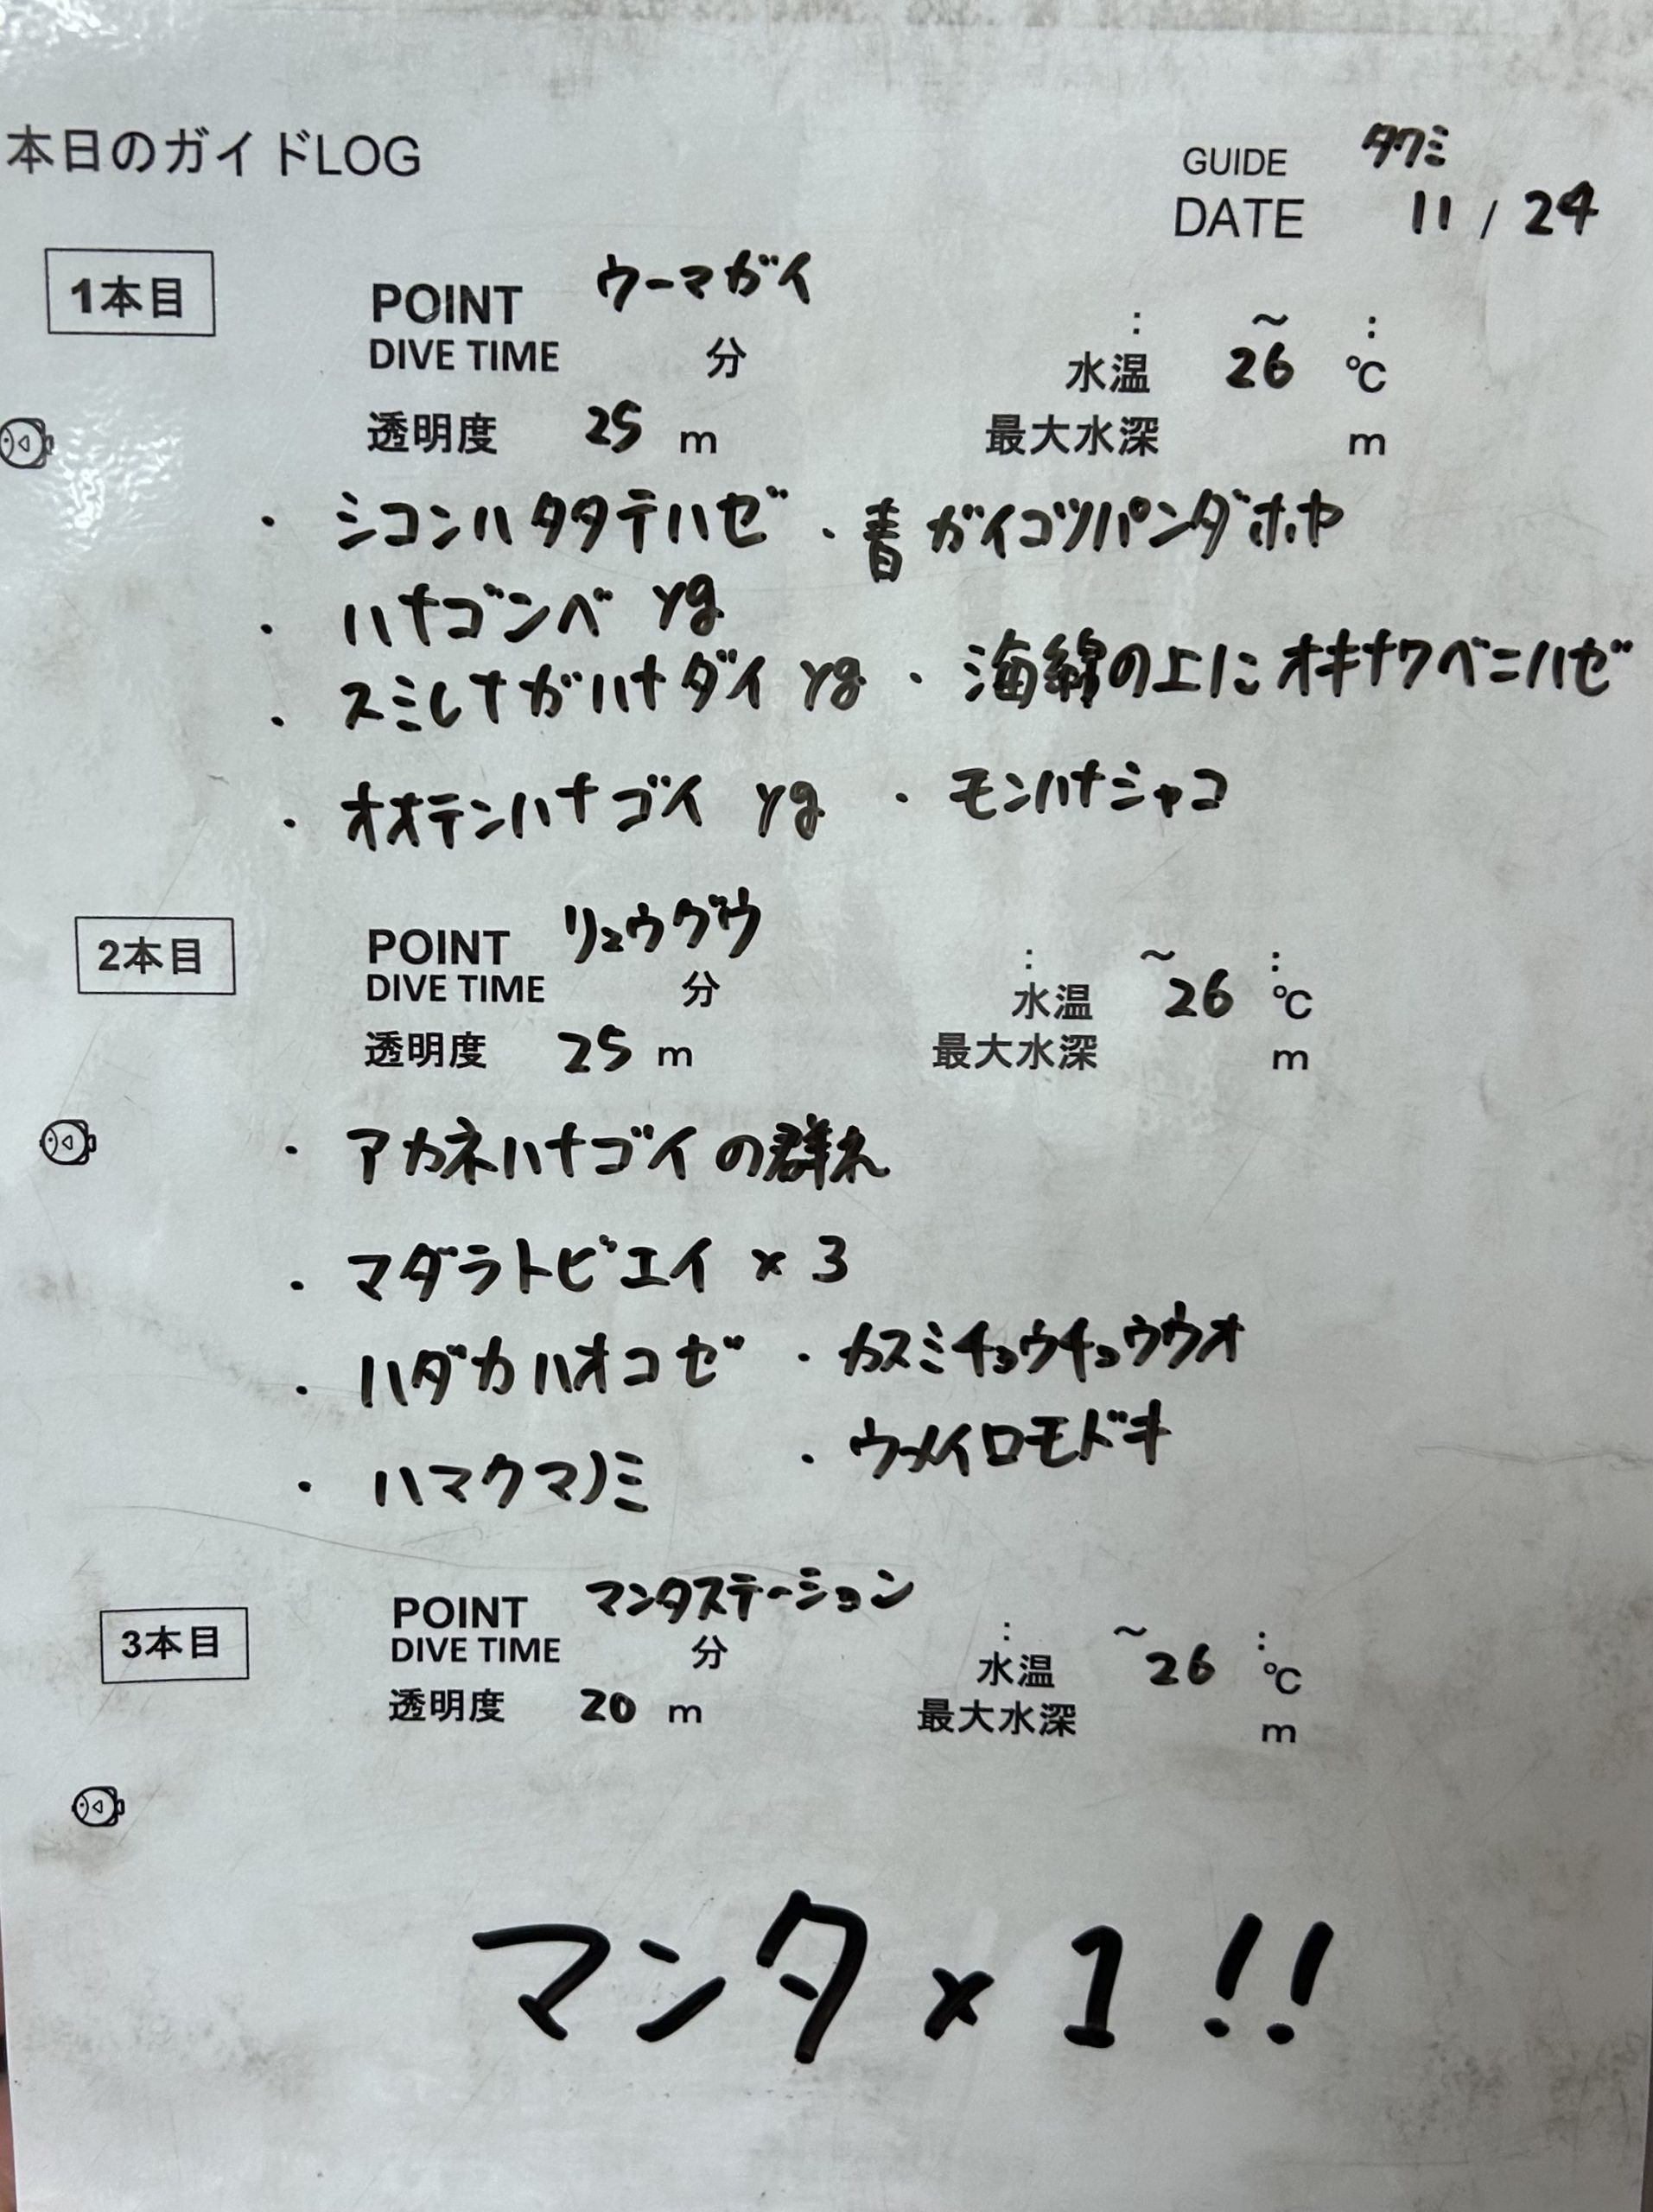 本日のガイドLOG
GUIDE タクミ
DATE 11 / 24
1本目
POINT ウーマガイ : ～ :
DIVE TIME 分 水温 26 ℃
透明度 25 m 最大水深 m
・シコンハタタテハゼ ・青ガイコツパンダホヤ
・ハナゴンベ yg
・スミレナガハナダイ yg ・海綿の上にオキナワベニハゼ
・オオテンハナゴイ yg ・モンハナシャコ
2本目
POINT リュウグウ : ～ :
DIVE TIME 分 水温 26 ℃
透明度 25 m 最大水深 m
・アカネハナゴイの群れ
・マダラトビエイ × 3
・ハダカハオコゼ ・カスミチョウチョウウオ
・ハマクマノミ ・ウメイロモドキ
3本目
POINT マンタステーション : ～ :
DIVE TIME 分 水温 26 ℃
透明度 20 m 最大水深 m
マンタ × 1 !!